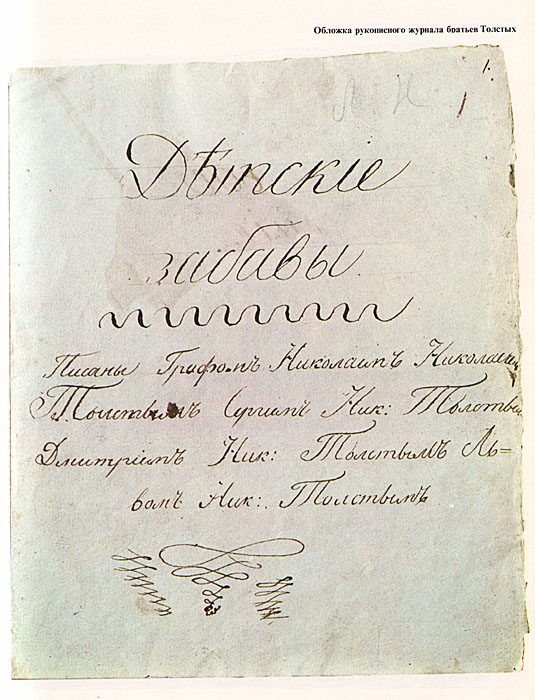 Обложка рукописного журнала братьев Толстых
1.
Л. Н
Дѣтскіе
забавы.
Писаны Графомъ Николаимъ Николаеви
Толстымъ Сергіемъ Ник: Толстым
Дмитріемъ Ник: Толстымъ Ль=
вомъ Ник: Толстымъ